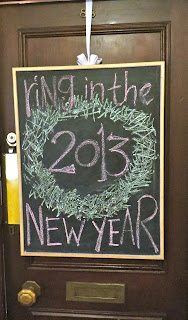 rING in the
2013
NEW YEAR